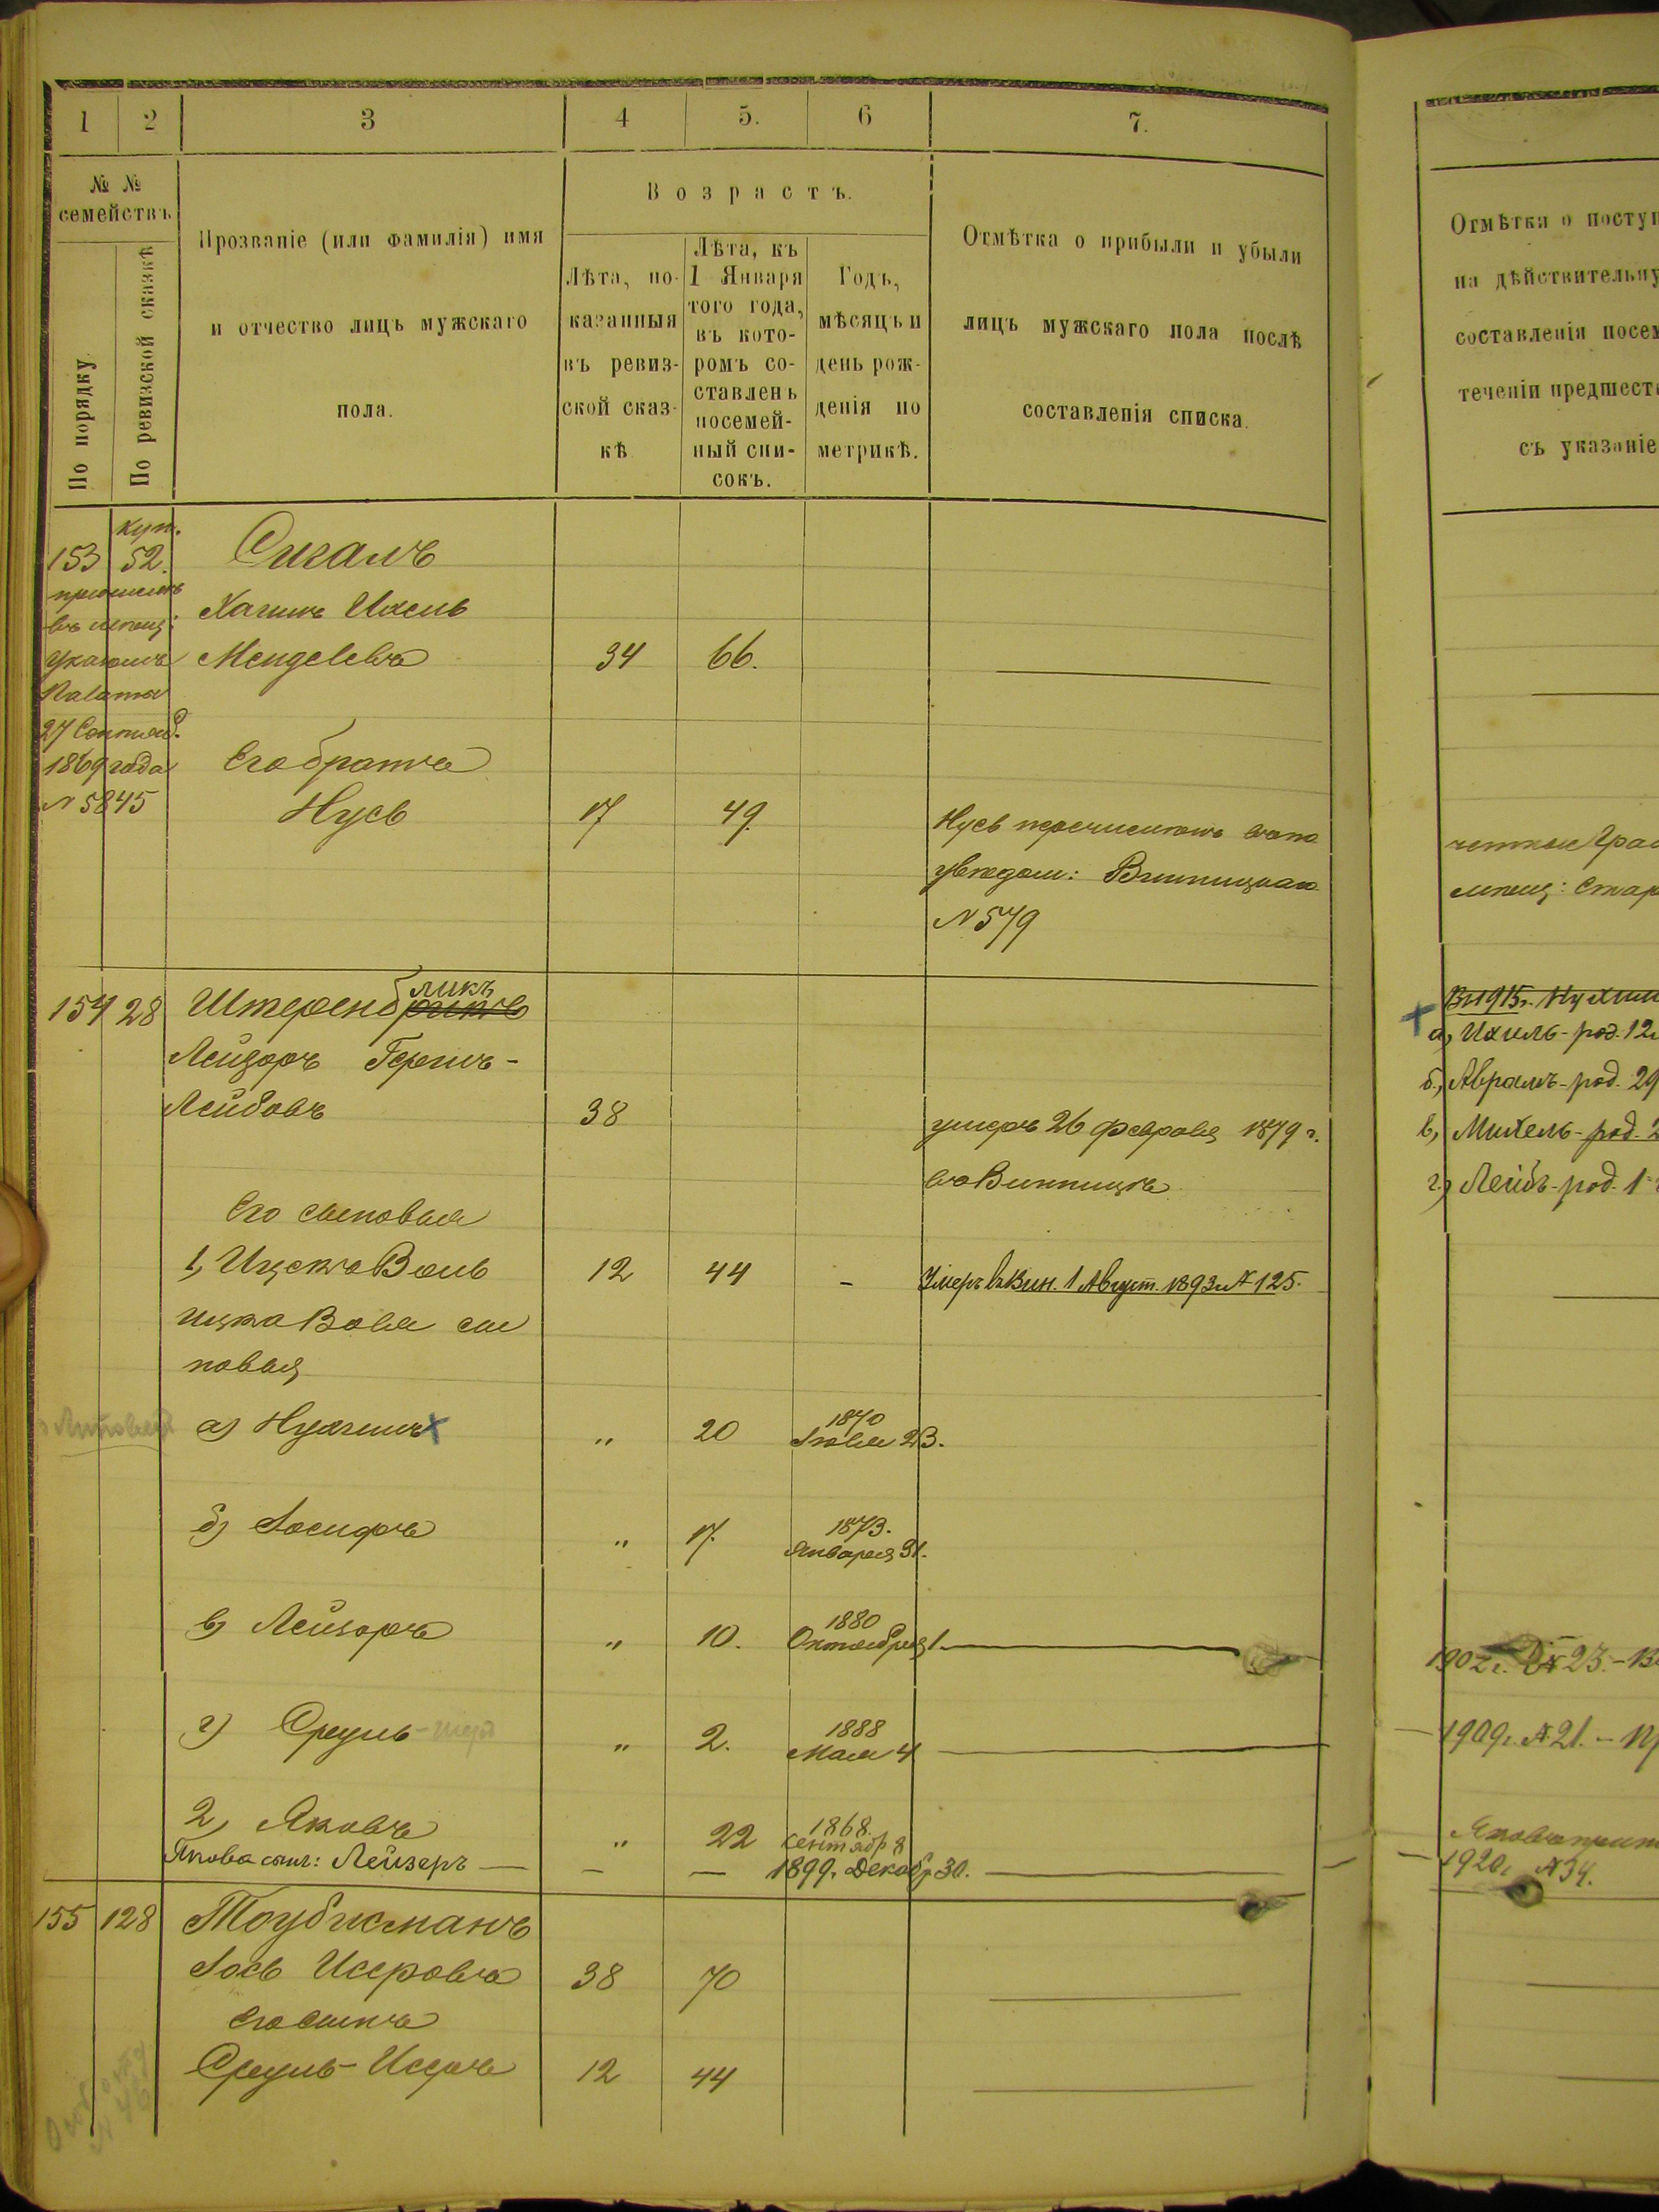 1 2 3 4 5. 6 7.
№ №
семействъ
По порядку
По ревизской сказкѣ
Прозваніе (или фамилія) имя
и отчество лицъ мужскаго
пола.
Возрастъ.
Лѣта, по-
казанныя
въ ревиз-
ской сказ-
кѣ
Лѣта, къ
1 Января
того года,
въ кото-
ромъ со-
ставленъ
посемей-
ный спи-
сокъ.
Годъ,
мѣсяцъ и
день рож-
денія по
метрикѣ.
Отмѣтка о прибыли и убыли
лицъ мужскаго пола послѣ
составленія списка.
Отмѣтка о поступ
на дѣйствительну
составленія посем
теченіи предшест
съ указаніе
куп.
153 52. Сигалъ
Хаимъ Иосль
указомъ Менделевъ 34 66.
27 Сентяб.
1869 года Его братъ
№ 5845 Нусь 17 49. Нусь перечисленъ
уѣздом: Винницкаго
№ 579
мѣщ: Стар
154 28 Штеренбликъ
Лейзоръ Гершъ-
Лейбовъ 38 умеръ 26 февраля 1879 г.
въ Винницѣ
Его сыновья
1, Ицско Воль 12 44 - Умеръ въ Вин. 1 Август. 1893 г. № 125.
Ицка Воля сы
новья
а) Нухимъ " 20 1870 Іюля 23.
б) Іосифъ " 17. 1873. Января 31.
в) Лейзоръ " 10. 1880 Октября 1.
г) Сруль " 2. 1888 Мая 4
2, Яковъ " 22 1868. Сентябр 8
Якова сынъ: Лейзеръ — — — 1899 г. Декабр 30.
В 1915 г. Нухим
а, Ихиль - род. 12
б, Аврамъ - род. 29
в, Михель - род. 2
г, Лейбъ - род. 1
1902 г. № 23. -
1909 г. № 21. - Пр
1920 г. № 34.
155 128 Тоубисманъ
Іось Исеровъ 38 70
Его сынъ
Сруль-Исеръ 12 44